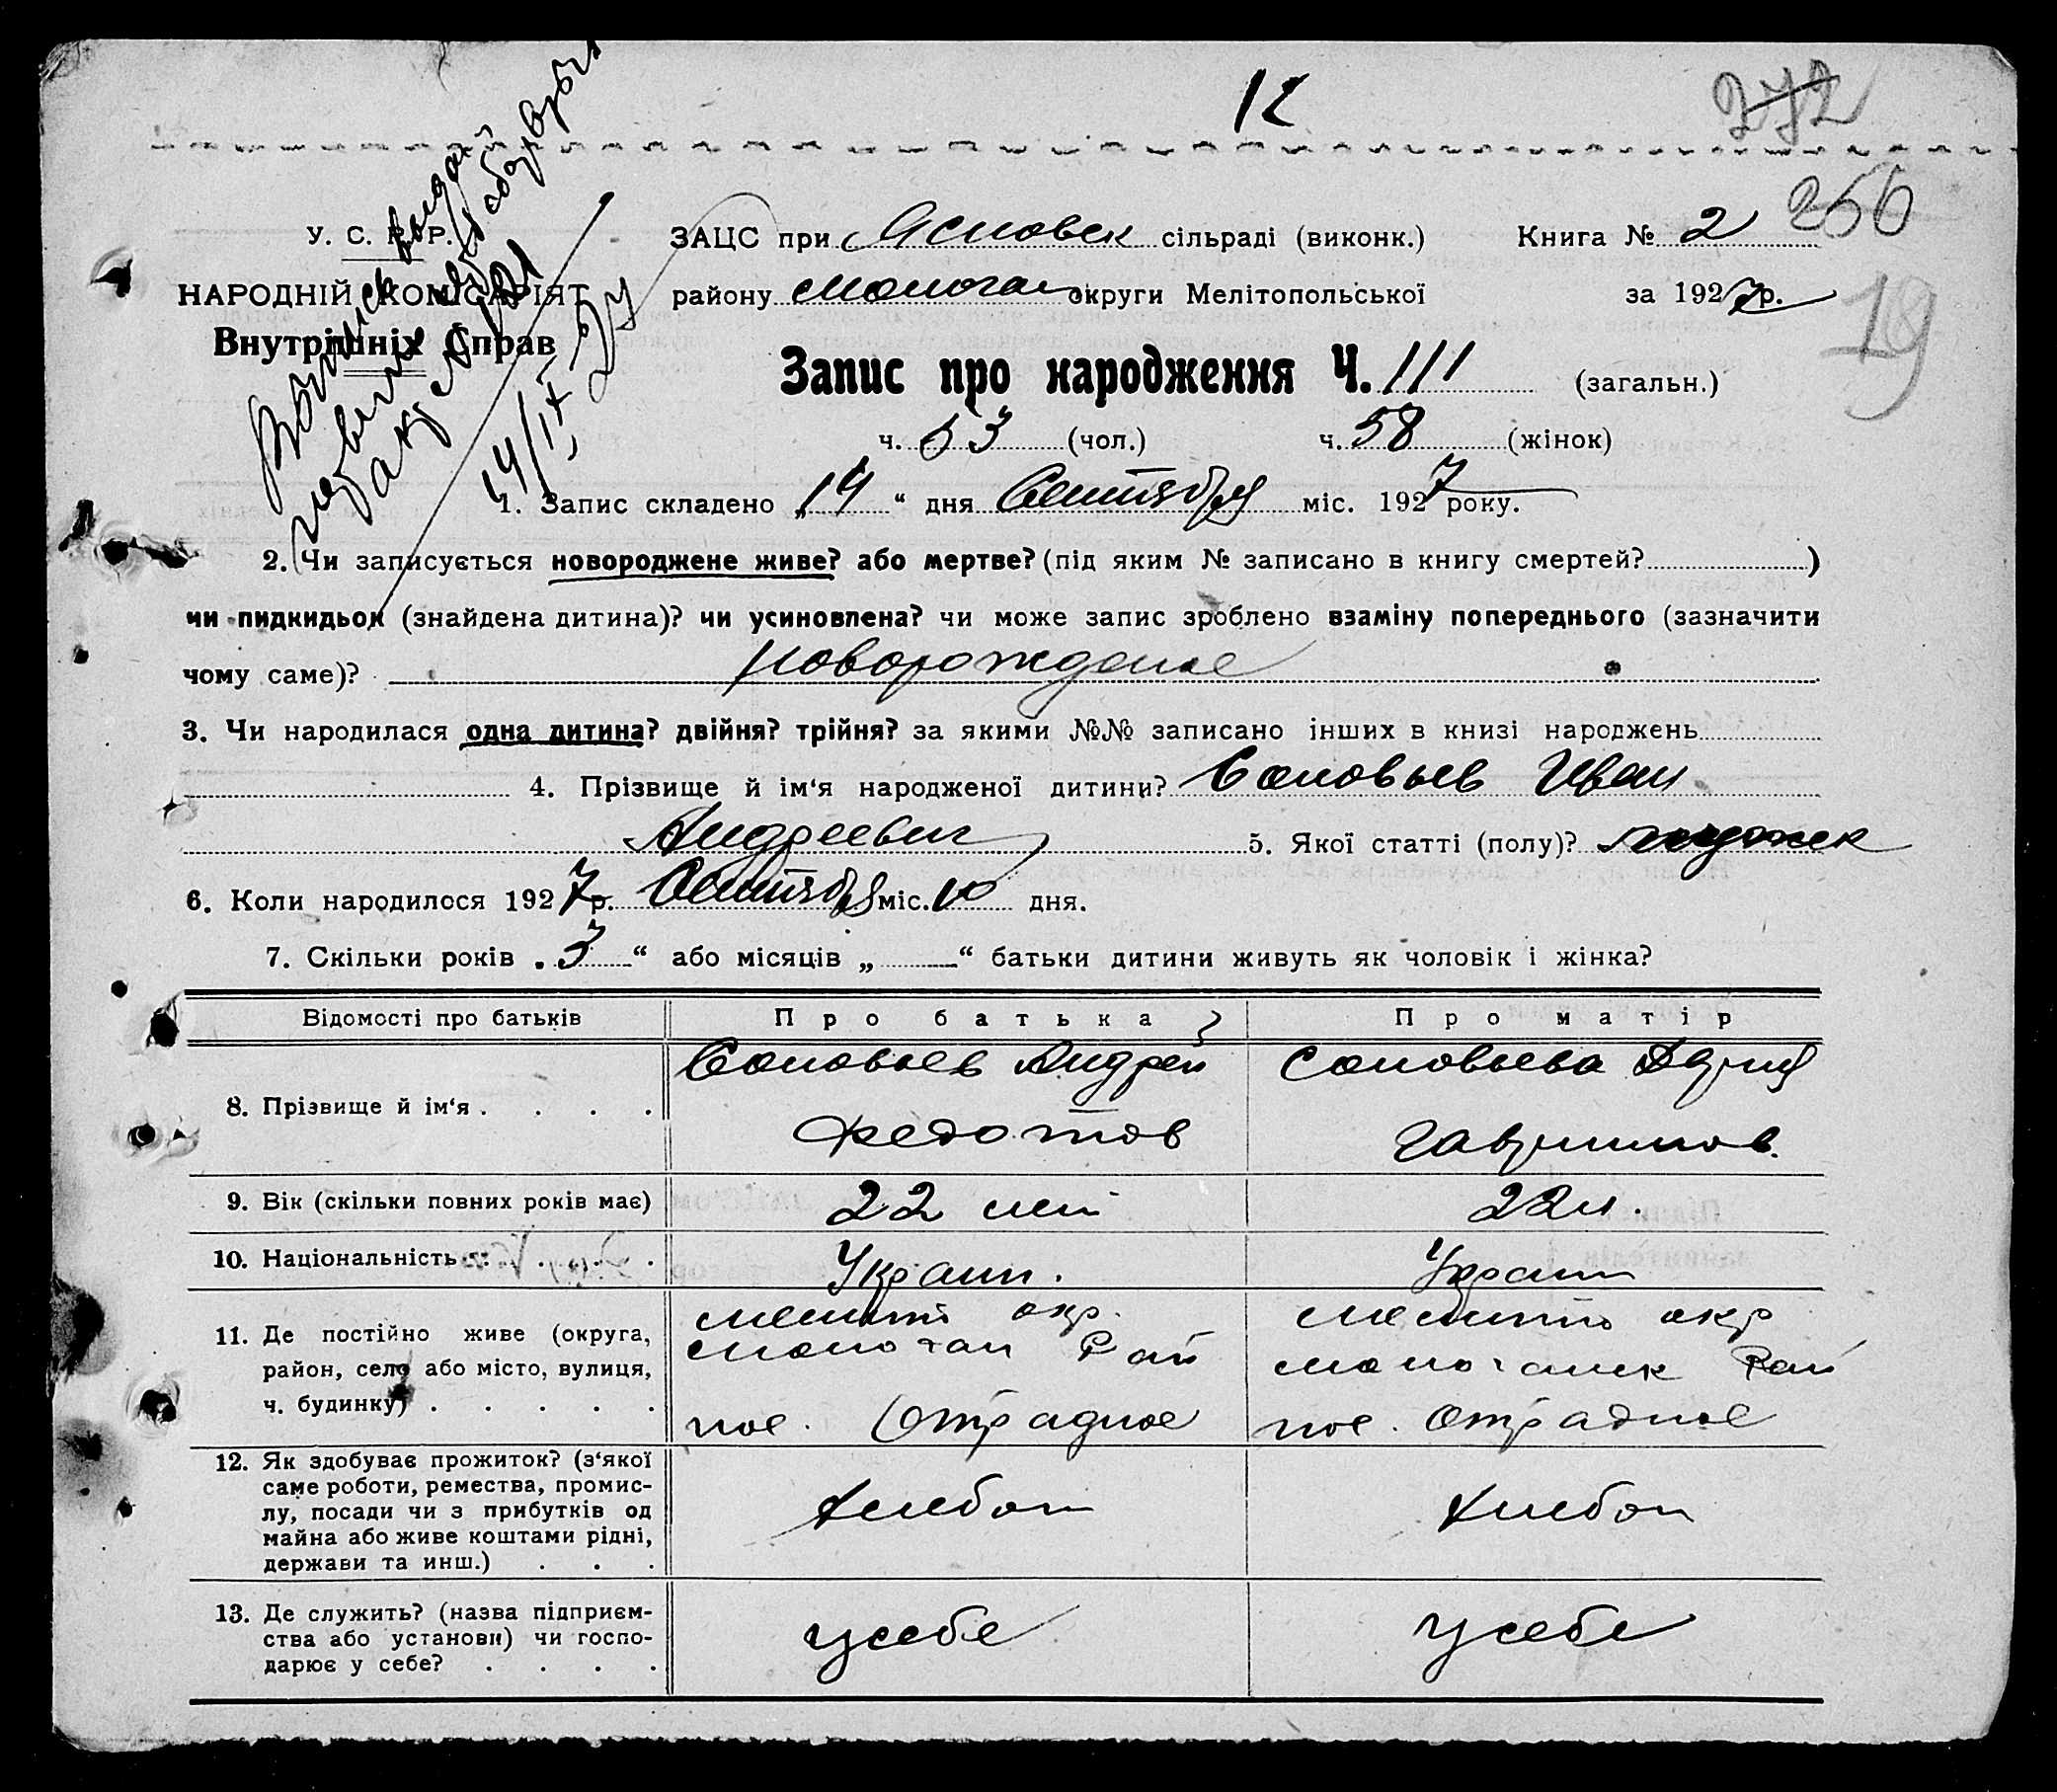 12
272
256
19
У. С. Р. Р.
НАРОДНІЙ КОМІСАРІЯТ
Внутрішніх Справ
14/IX-27
ЗАЦС при Ясновск сільраді (виконк.) Книга № 2
району Молочан округи Мелітопольської за 1927 р.
Запис про народження Ч. 111 (загальн.)
ч. 53 (чол.) ч. 58 (жінок)
1. Запис складено „14“ дня Сентября міс. 1927 року.
2. Чи записується новороджене живе? або мертве? (під яким № записано в книгу смертей? )
чи пидкидьок (знайдена дитина)? чи усиновлена? чи може запис зроблено взаміну попереднього (зазначити
чому саме)? новорожденое
3. Чи народилася одна дитина? двійня? трійня? за якими №№ записано інших в книзі народжень
4. Прізвище й ім‘я народженої дитини? Соловьев Иван
Андреевич 5. Якої статті (полу)? мужск
6. Коли народилося 1927 р. Сентября міс. 10 дня.
7. Скільки років „3“ або місяців „ “ батьки дитини живуть як чоловік і жінка?
Відомості про батьків Про батька Про матір
8. Прізвище й ім‘я . . . . Соловьев Андрей Соловьева Дария
Федотов Гаврилов.
9. Вік (скільки повних років має) 22 лет 22 л.
10. Національність . . . . Украин. Украин
11. Де постійно живе (округа, район, село або місто, вулиця, ч. будинку) . . . . .
Мелит окр. Мелито окр
Молочан Рай Молочанск Рай
пос. Отрадное пос. Отрадное
12. Як здобуває прожиток? (з‘якої
саме роботи, ремества, промис-
лу, посади чи з прибутків од
майна або живе коштами рідні,
держави та инш.) . . .
Хлебоп Хлебоп
13. Де служить? (назва підприєм-
ства або установи) чи госпо-
дарює у себе? . . . .
у себе у себе